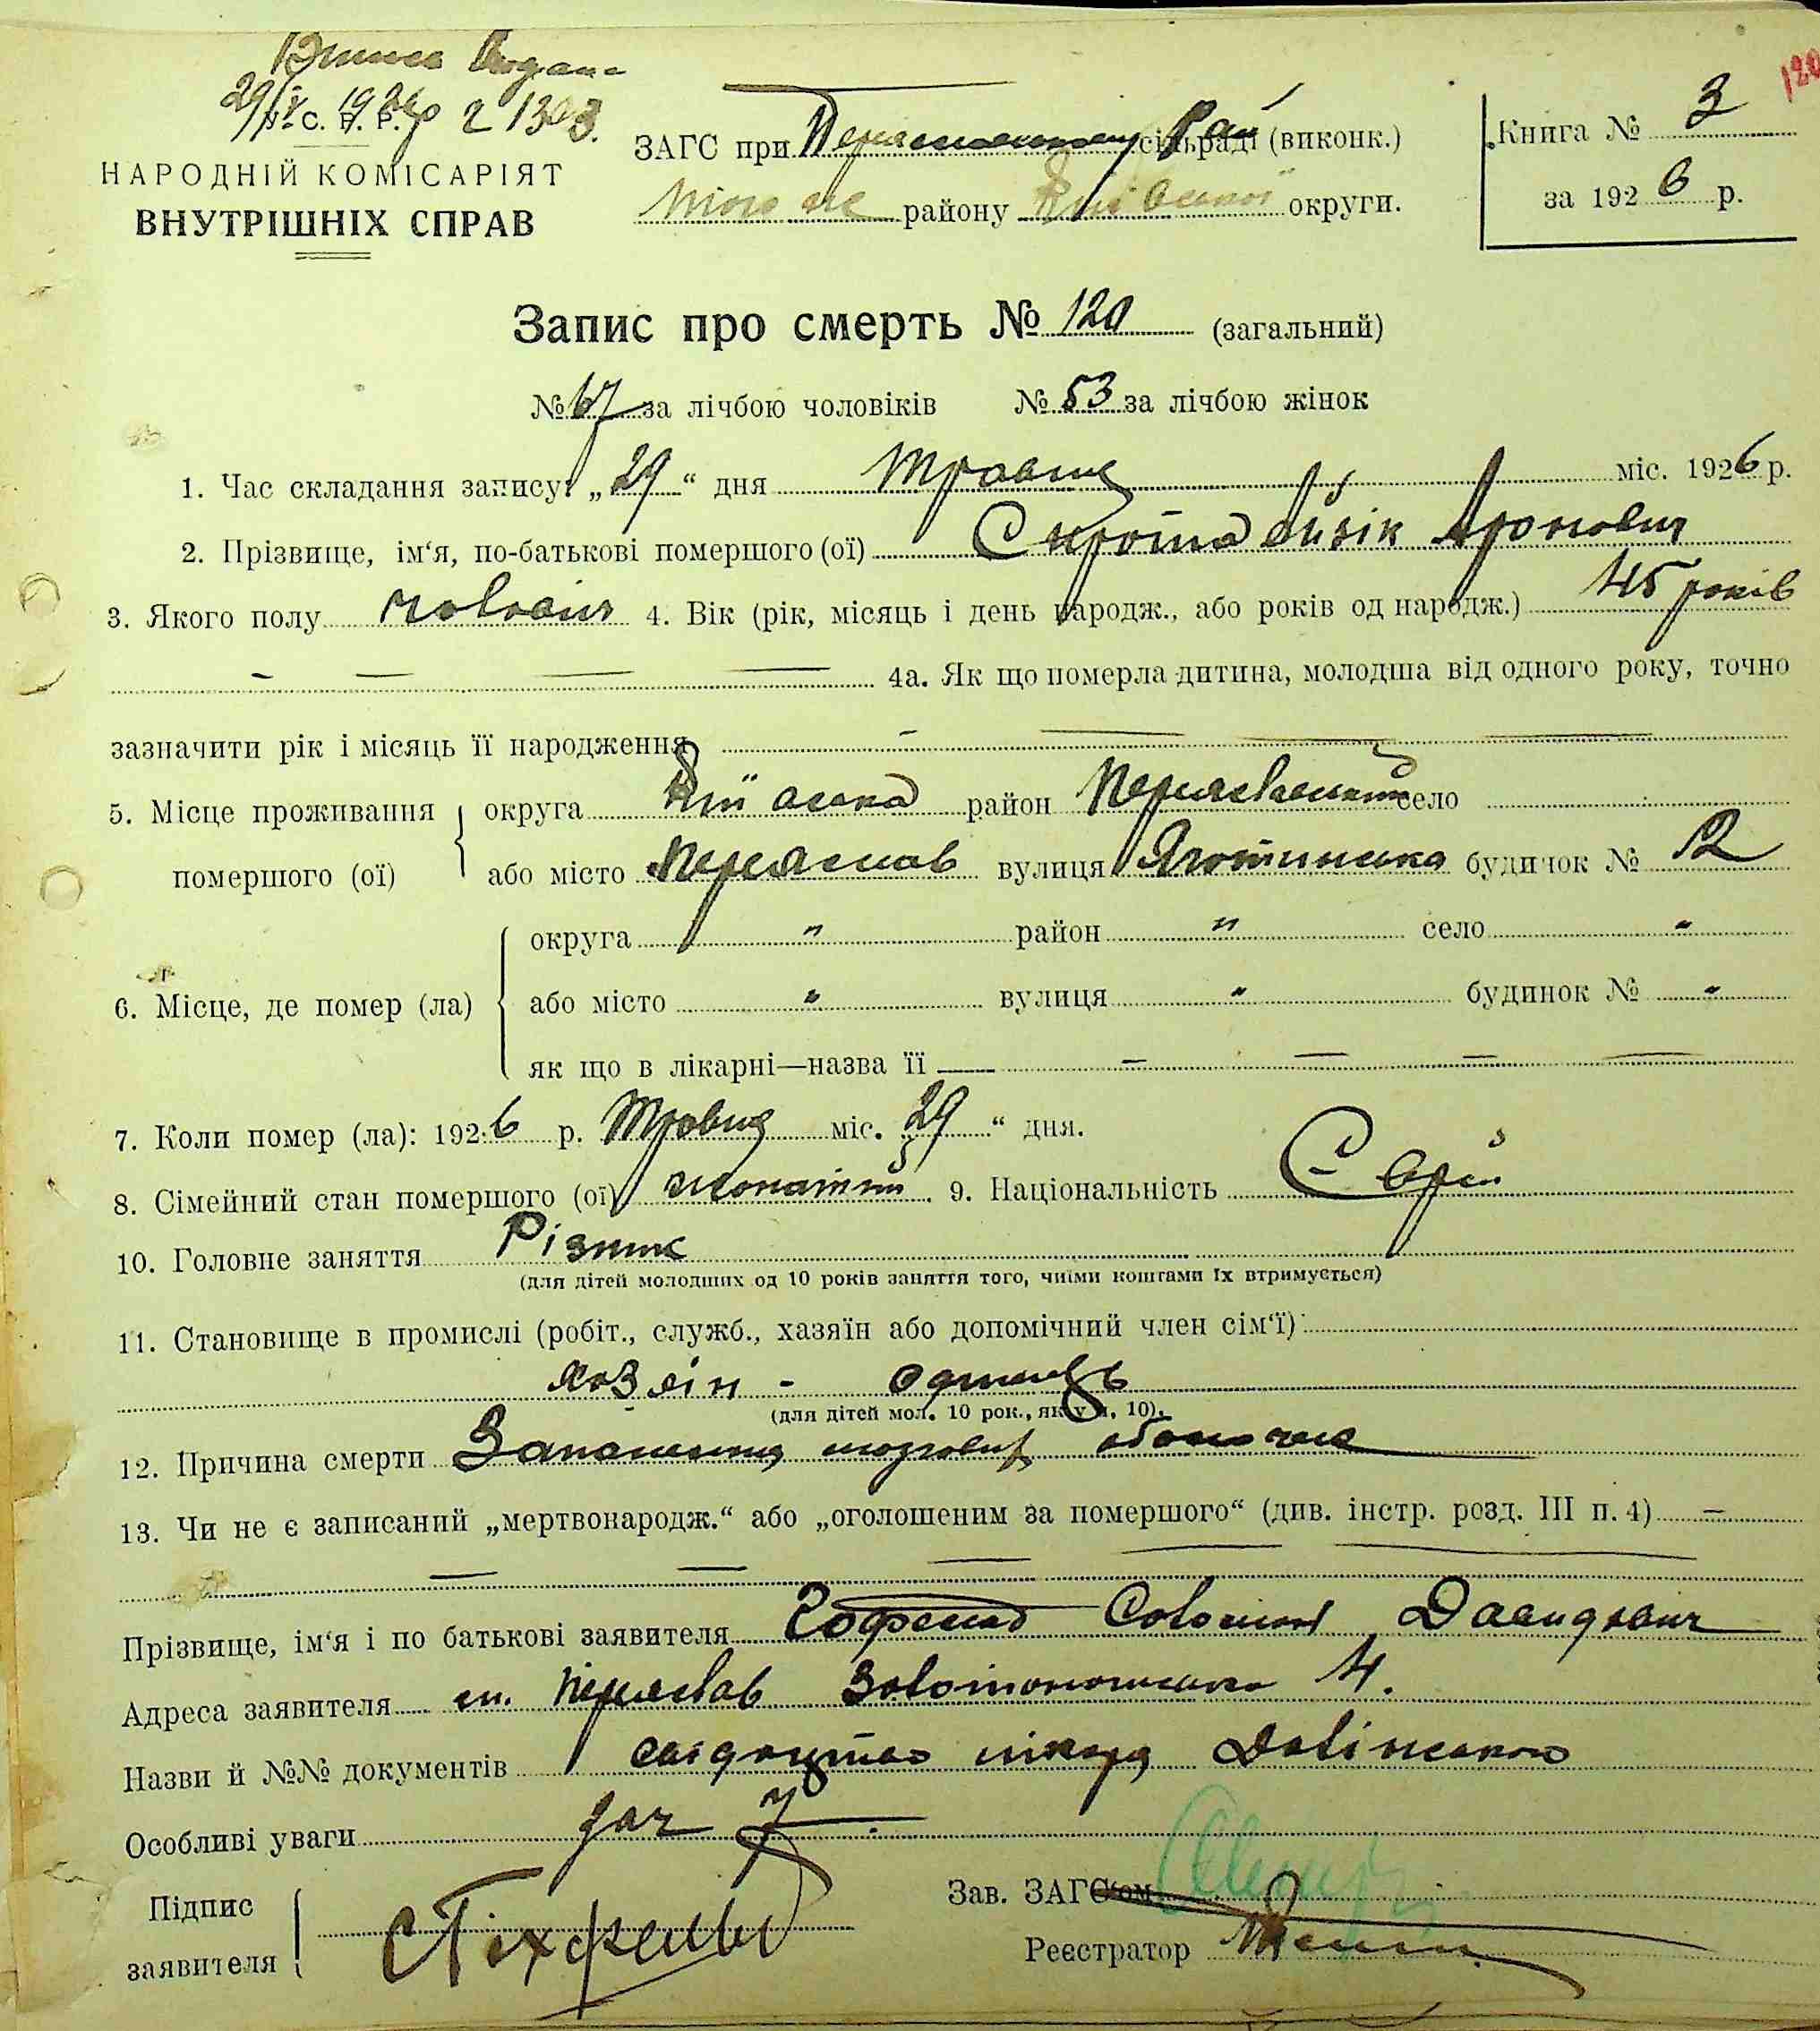 29/V 1926 р 2 1303.
У. С. Р. Р.
НАРОДНІЙ КОМІСАРІЯТ
ВНУТРІШНІХ СПРАВ
ЗАГС при сільраді (виконк.)
району округи.
Книга № 3
за 1926 р.
120
Запис про смерть № 120 (загальний)
№ 67 за лічбою чоловіків № 53 за лічбою жінок
1. Час складання запису: „29“ дня травня міс. 1926 р.
2. Прізвище, ім‘я, по-батькові помершого (ої) Сирота Айзік Аронович
3. Якого полу чоловіч 4. Вік (рік, місяць і день народж., або років од народж.) 45 років
4а. Як що померла дитина, молодша від одного року, точно
зазначити рік і місяць її народження
5. Місце проживання округа Київська район Переяславський село
помершого (ої) або місто Переяслав вулиця Яготинська будинок № 12
округа " район " село "
6. Місце, де помер (ла) або місто " вулиця " будинок № "
як що в лікарні—назва її —
7. Коли помер (ла): 1926 р. Травня міс. 29 “ дня.
8. Сімейний стан помершого (ої) жонатий 9. Національність Єврей
10. Головне заняття Різник
(для дітей молодших од 10 років заняття того, чиїми коштами їх втримується)
11. Становище в промислі (робіт., служб., хазяїн або допомічний член сім‘ї)
хозяін -
(для дітей мол. 10 рок., як у п. 10).
12. Причина смерти Запалення мозгових оболочек
13. Чи не є записаний „мертвонародж.“ або „оголошеним за помершого“ (див. інстр. розд. III п. 4) —
Прізвище, ім‘я і по батькові заявителя Соломон Давидович
Адреса заявителя м. Переяслав Золотоношська 4.
Назви й №№ документів свідоцтво лікаря
Особливі уваги
Підпис
заявителя
Зав. ЗАГС‘ом
Реєстратор